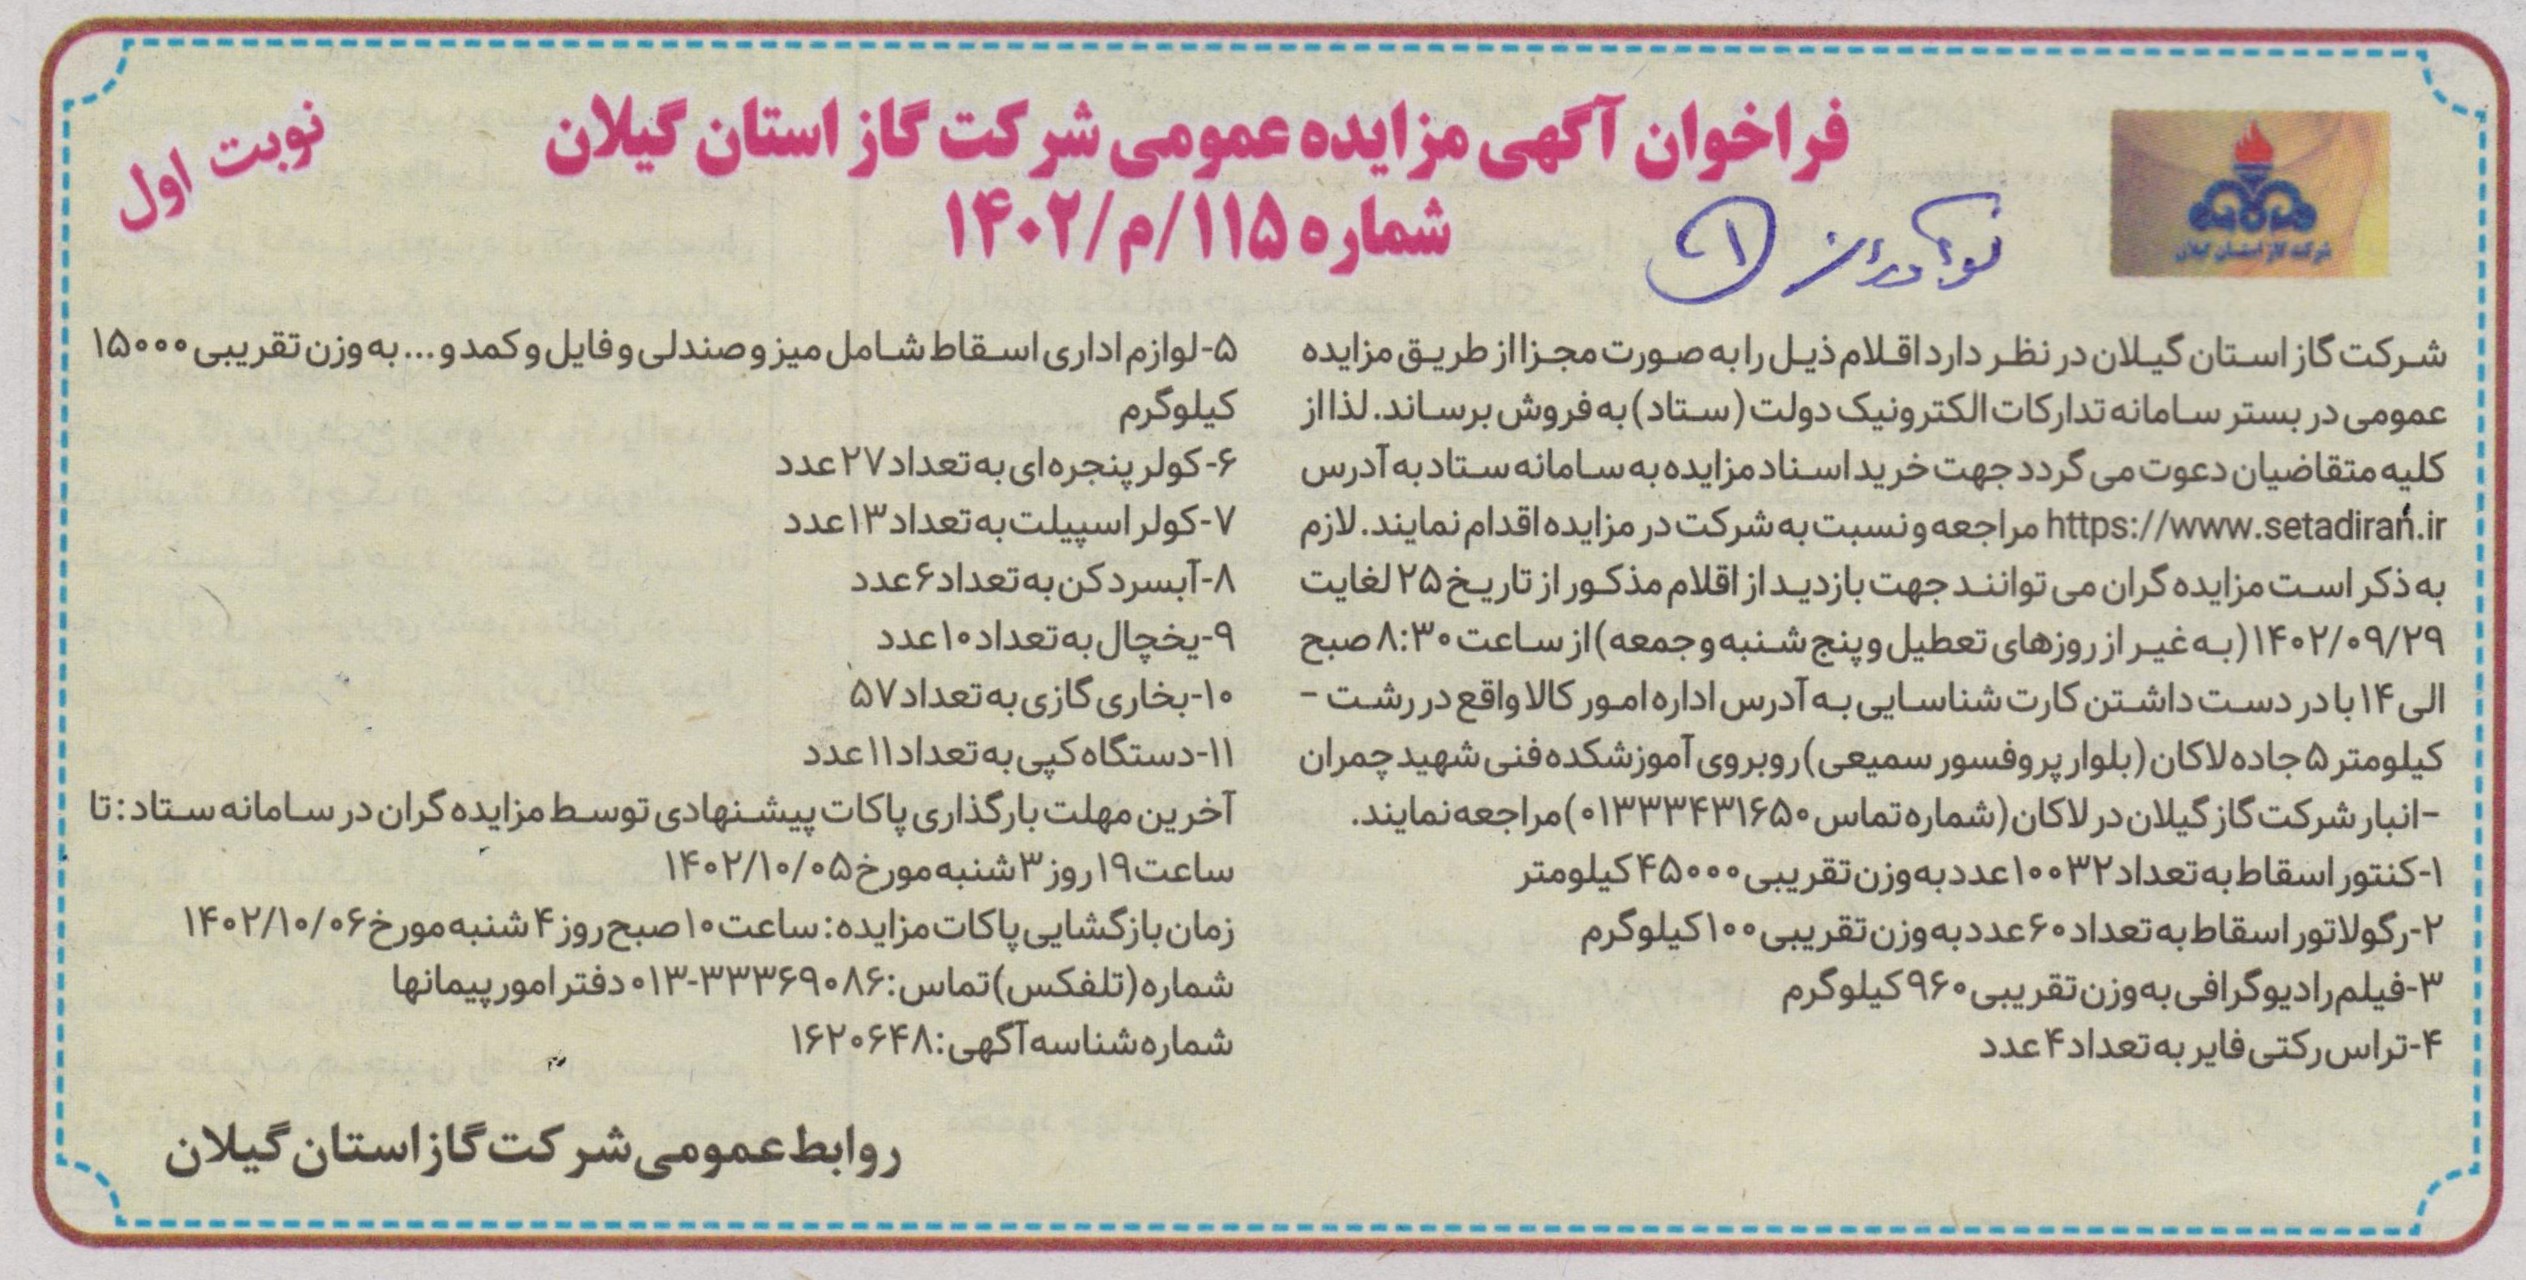 فراخوان آگهی مزایده عمومی شرکت گاز استان گیلان
شماره ۱۱۵/م/۱۴۰۲
نوبت اول
شرکت گاز استان گیلان
شرکت گاز استان گیلان در نظر دارد اقلام ذیل را به صورت مجزا از طریق مزایده
عمومی در بستر سامانه تدارکات الکترونیک دولت (ستاد) به فروش برساند. لذا از
کلیه متقاضیان دعوت می گردد جهت خرید اسناد مزایده به سامانه ستاد به آدرس
https://www.setadiran.ir مراجعه و نسبت به شرکت در مزایده اقدام نمایند. لازم
به ذکر است مزایده گران می توانند جهت بازدید از اقلام مذکور از تاریخ ۲۵ لغایت
۱۴۰۲/۰۹/۲۹ (به غیر از روزهای تعطیل و پنج شنبه و جمعه) از ساعت ۸:۳۰ صبح
الی ۱۴ با در دست داشتن کارت شناسایی به آدرس اداره امور کالا واقع در رشت -
کیلومتر ۵ جاده لاکان (بلوار پروفسور سمیعی) روبروی آموزشکده فنی شهید چمران
-انبار شرکت گاز گیلان در لاکان (شماره تماس ۰۱۳۳۳۴۳۱۶۵۰) مراجعه نمایند.
۱-کنتور اسقاط به تعداد ۱۰۰۳۲ عدد به وزن تقریبی ۴۵۰۰۰ کیلومتر
۲-رگولاتور اسقاط به تعداد ۶۰ عدد به وزن تقریبی ۱۰۰ کیلوگرم
۳-فیلم رادیوگرافی به وزن تقریبی ۹۶۰ کیلوگرم
۴-تراس رکتی فایر به تعداد ۴ عدد
۵-لوازم اداری اسقاط شامل میز و صندلی و فایل و کمد و... به وزن تقریبی ۱۵۰۰۰
کیلوگرم
۶-کولر پنجره ای به تعداد ۲۷ عدد
۷-کولر اسپیلت به تعداد ۱۳ عدد
۸-آبسردکن به تعداد ۶ عدد
۹-یخچال به تعداد ۱۰ عدد
۱۰-بخاری گازی به تعداد ۵۷
۱۱-دستگاه کپی به تعداد ۱۱ عدد
آخرین مهلت بارگذاری پاکات پیشنهادی توسط مزایده گران در سامانه ستاد: تا
ساعت ۱۹ روز ۳ شنبه مورخ ۱۴۰۲/۱۰/۰۵
زمان بازگشایی پاکات مزایده: ساعت ۱۰ صبح روز ۴ شنبه مورخ ۱۴۰۲/۱۰/۰۶
شماره (تلفکس) تماس: ۳۳۳۶۹۰۸۶-۰۱۳ دفتر امور پیمانها
شماره شناسه آگهی: ۱۶۲۰۶۴۸
روابط عمومی شرکت گاز استان گیلان